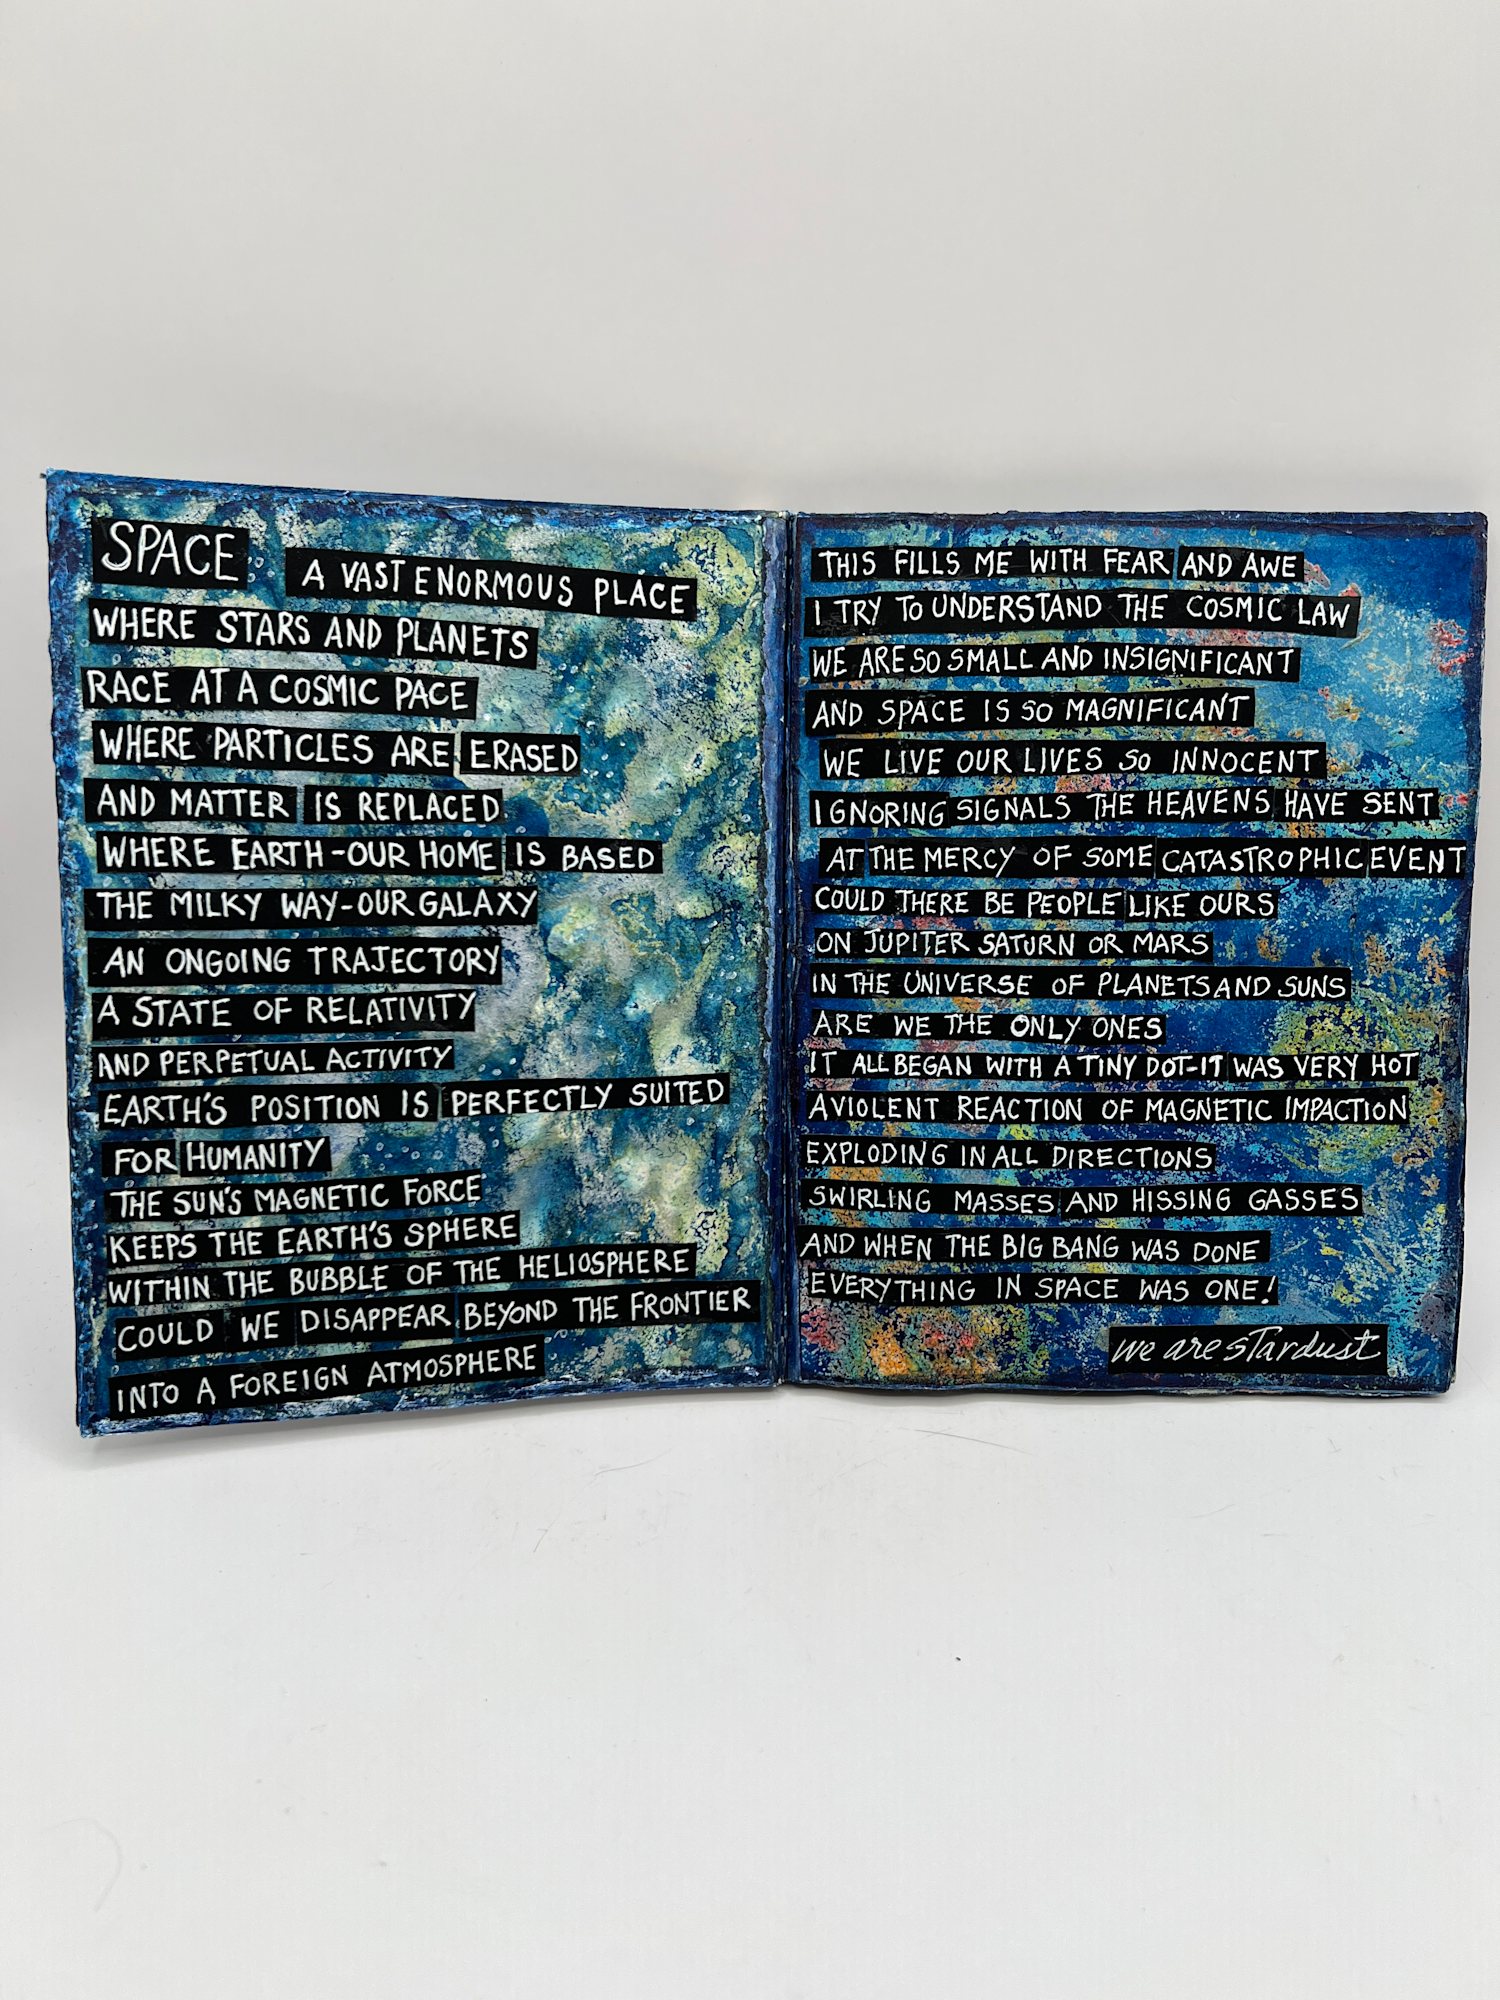 SPACE A VAST ENORMOUS PLACE
WHERE STARS AND PLANETS
RACE AT A COSMIC PACE
WHERE PARTICLES ARE ERASED
AND MATTER IS REPLACED
WHERE EARTH-OUR HOME IS BASED
THE MILKY WAY-OUR GALAXY
AN ONGOING TRAJECTORY
A STATE OF RELATIVITY
AND PERPETUAL ACTIVITY
EARTH'S POSITION IS PERFECTLY SUITED
FOR HUMANITY
THE SUN'S MAGNETIC FORCE
KEEPS THE EARTH'S SPHERE
WITHIN THE BUBBLE OF THE HELIOSPHERE
COULD WE DISAPPEAR BEYOND THE FRONTIER
INTO A FOREIGN ATMOSPHERE
THIS FILLS ME WITH FEAR AND AWE
I TRY TO UNDERSTAND THE COSMIC LAW
WE ARE SO SMALL AND INSIGNIFICANT
AND SPACE IS SO MAGNIFICANT
WE LIVE OUR LIVES SO INNOCENT
IGNORING SIGNALS THE HEAVENS HAVE SENT
AT THE MERCY OF SOME CATASTROPHIC EVENT
COULD THERE BE PEOPLE LIKE OURS
ON JUPITER SATURN OR MARS
IN THE UNIVERSE OF PLANETS AND SUNS
ARE WE THE ONLY ONES
IT ALL BEGAN WITH A TINY DOT-IT WAS VERY HOT
A VIOLENT REACTION OF MAGNETIC IMPACTION
EXPLODING IN ALL DIRECTIONS
SWIRLING MASSES AND HISSING GASSES
AND WHEN THE BIG BANG WAS DONE
EVERYTHING IN SPACE WAS ONE!
we are sTardust